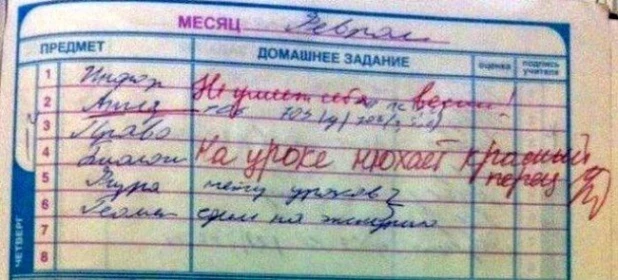 МЕСЯЦ Феврал
ПРЕДМЕТ ДОМАШНЕЕ ЗАДАНИЕ оценка подпись учителя
1 Инфор Не умеет себя вести!
2 Англ
3 Право
4 Биологи На уроке нюхает красный перец
5 нету уроков
6 Геомет
7
8
ЧЕТВЕРГ